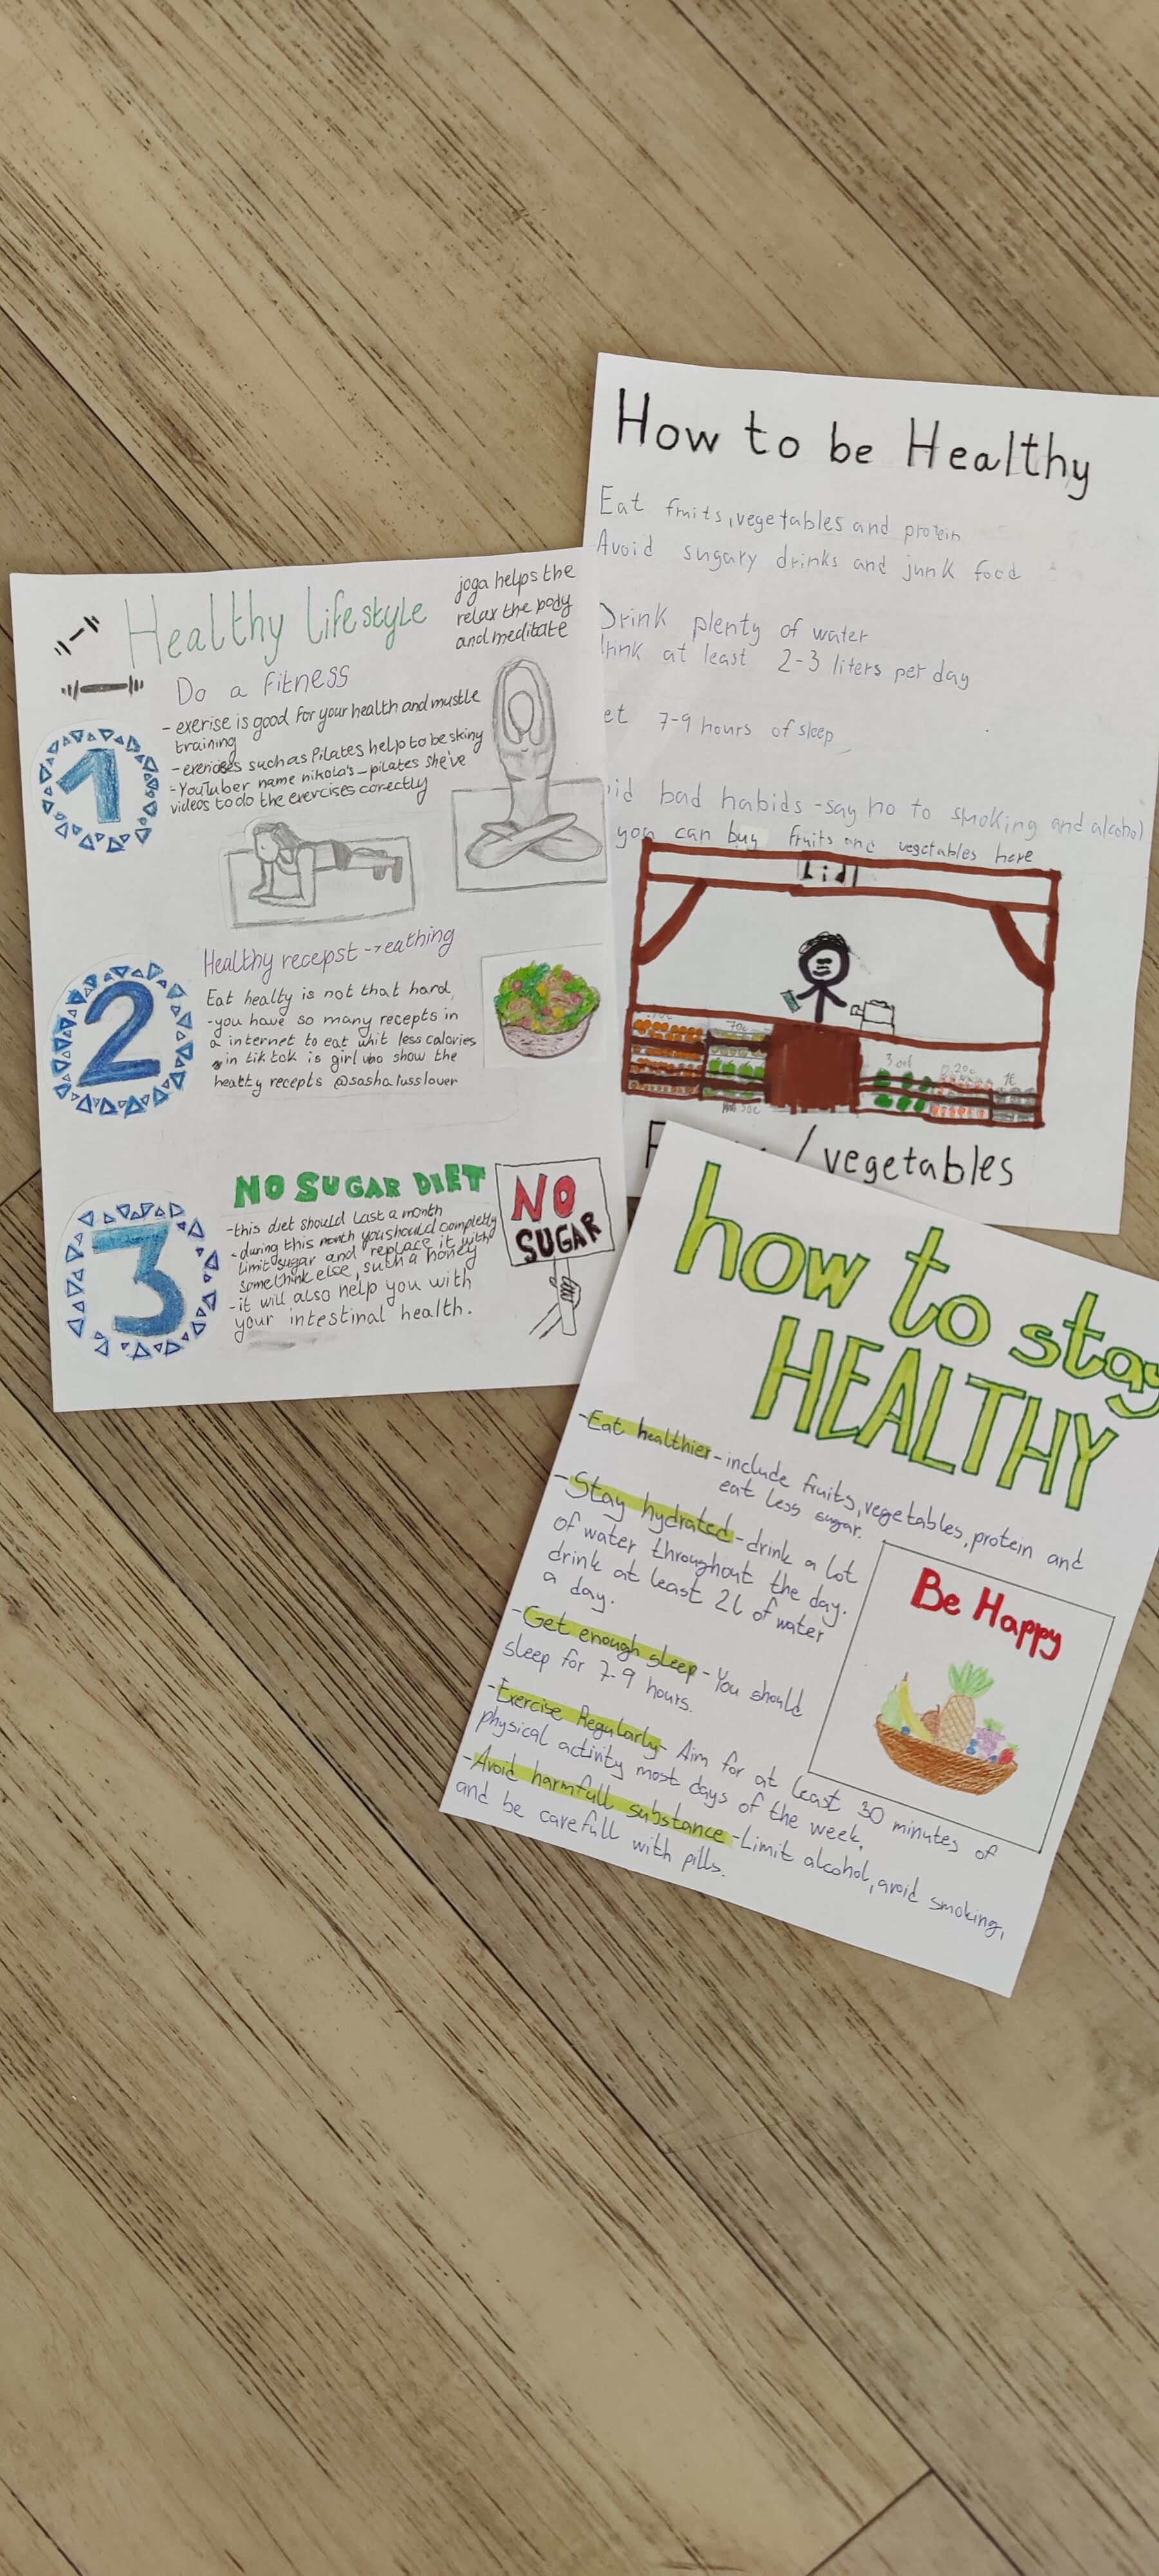 Healthy lifestyle
joga helps the
relax the body
and meditate
Do a fitness
1
- exerise is good for your health and mustle
training
- exercises such as Pilates help to be skiny
- YouTuber name nikola's_pilates she've
videos to do the exercises corectly
2
Healthy recepst → eathing
Eat healty is not that hard,
- you have so many recepts in
a internet to eat whit less calories
in tik tok is girl who show the
healty recepts @sashatusslover
3
NO SUGAR DIET
- this diet should last a month
- during this month you should completly
limit sugar and replace it with
somethink else, such a honey
- it will also help you with
your intestinal health.
NO
SUGAR
How to be Healthy
Eat fruits, vegetables and protein
Avoid sugary drinks and junk food
Drink plenty of water
drink at least 2-3 liters per day
et 7-9 hours of sleep
id bad habids - say no to smoking and alcohol
you can buy fruits and vegetables here
Lidl
70c
0,20c
1€
50c
/ vegetables
how to stay
HEALTHY
- Eat healthier - include fruits, vegetables, protein and
eat less sugar.
- Stay hydrated - drink a lot
of water throughout the day.
drink at least 2l of water
a day.
- Get enough sleep - You should
sleep for 7-9 hours.
- Exercise Regularly - Aim for at least 30 minutes of
physical activity most days of the week.
- Avoid harmfull substance - Limit alcohol, avoid smoking,
and be carefull with pills.
Be Happy